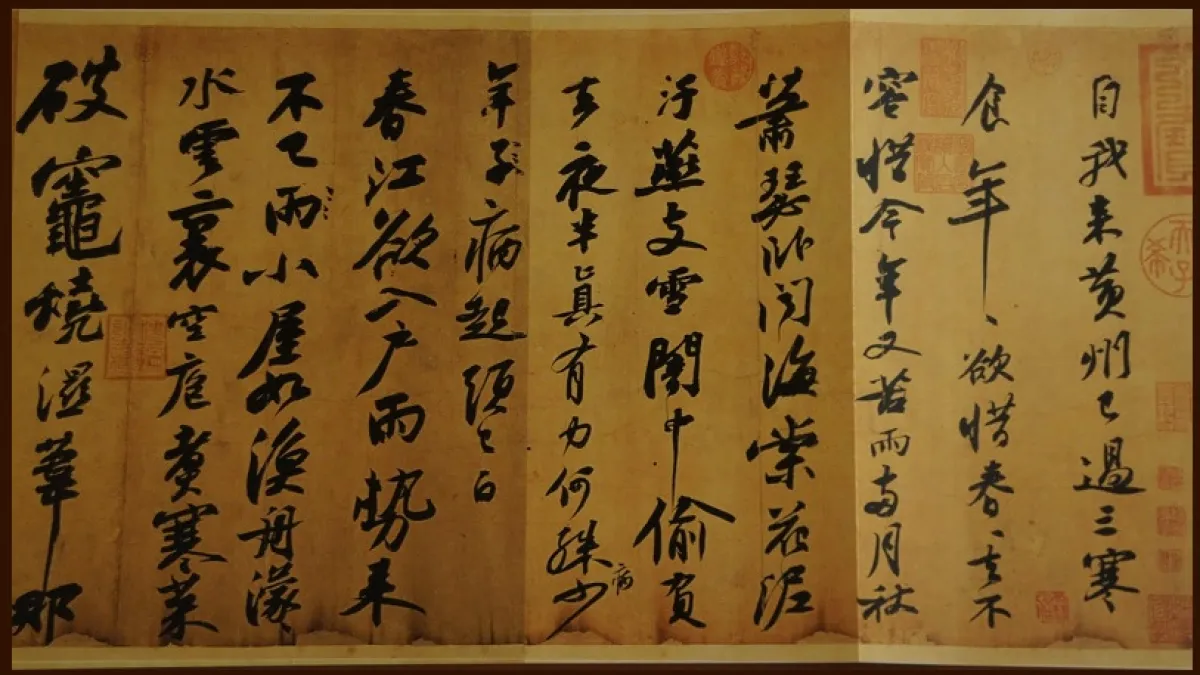 自我来黄州已過三寒
食年、欲惜春、去不
容惜今年又苦雨兩月秋
蕭瑟卧聞海棠花泥
汙燕支雪闇中偷負
去夜半真有力何殊病少
年子病起須已白
春江欲入户雨勢来
不已雨小屋如漁舟濛
水雲裏空庖煑寒菜
破竈燒濕葦那